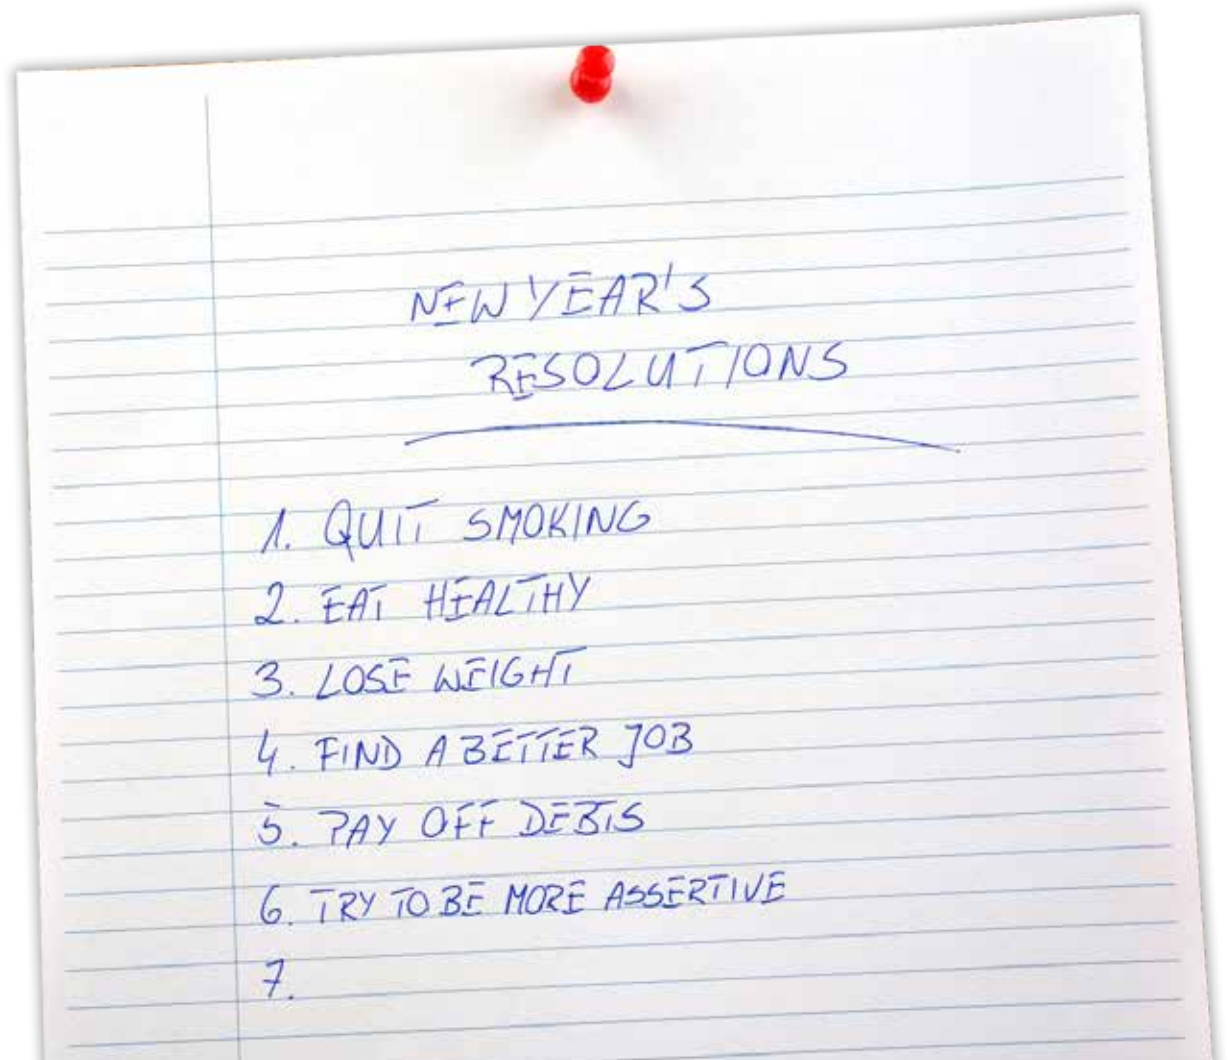 NEW YEAR'S
RESOLUTIONS
1. QUIT SMOKING
2. EAT HEALTHY
3. LOSE WEIGHT
4. FIND A BETTER JOB
5. PAY OFF DEBTS
6. TRY TO BE MORE ASSERTIVE
7.